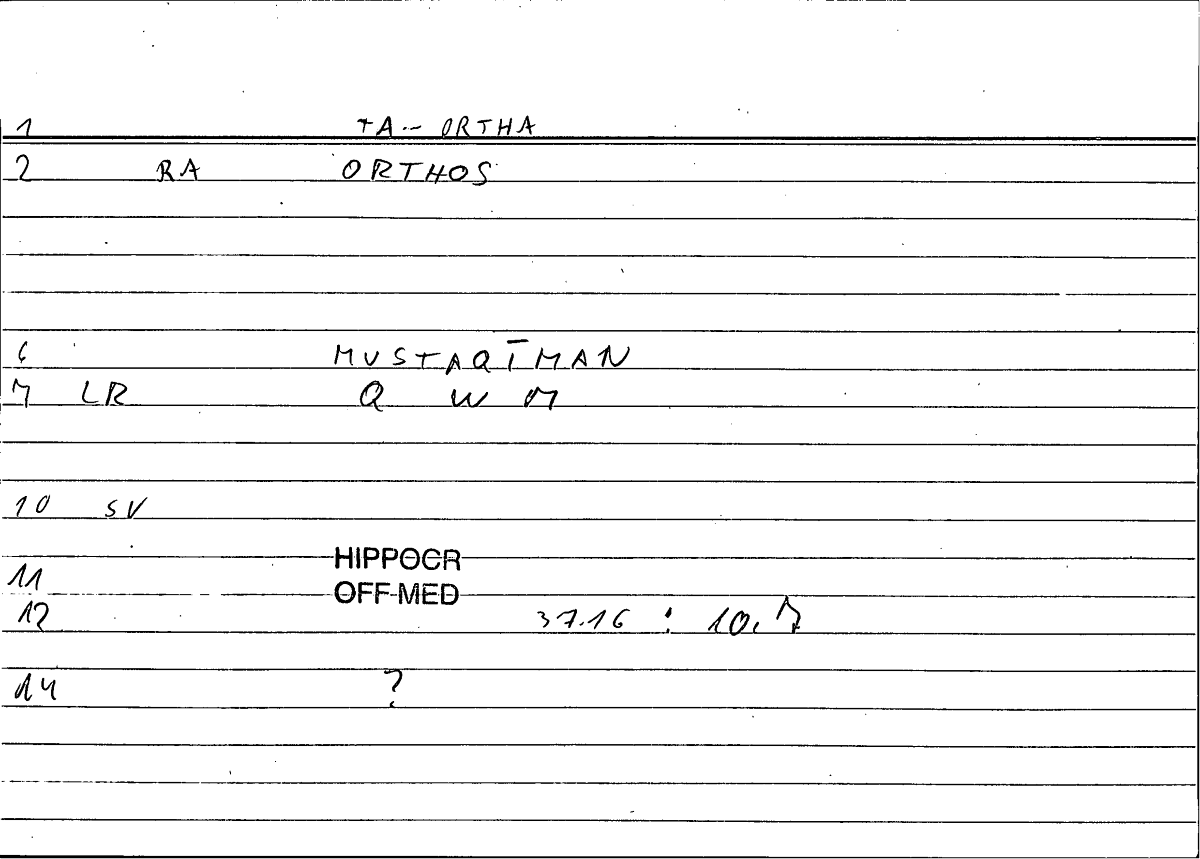 1 TA-- ORTHA
2 RA ORTHOS
6 MUSTAQĪMAN
7 LR Q W M
10 SV
11 HIPPOCR
OFF-MED
12 37.16 : 10.7
14 ?